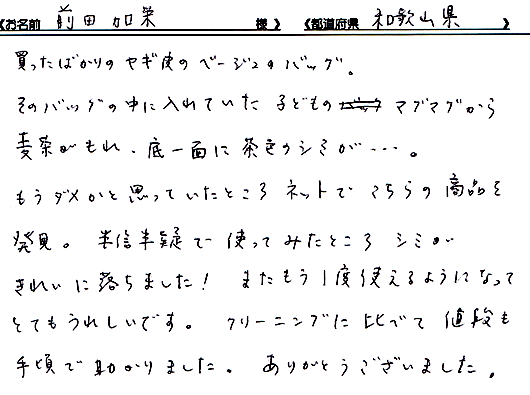 《お名前 前田 加栄 様》 《都道府県 和歌山県 》
買ったばかりの ヤギ皮の ベージュの バッグ。
そのバッグの中に入れていた 子どもの マグマグから
麦茶がもれ、底一面に 茶色のシミが…。
もうダメかと思っていたところ ネットで こちらの商品を
発見。 半信半疑で 使ってみたところ シミが
きれいに落ちました! またもう1度使えるようになって
とてもうれしいです。 クリーニングに比べて 値段も
手頃で助かりました。 ありがとうございました。